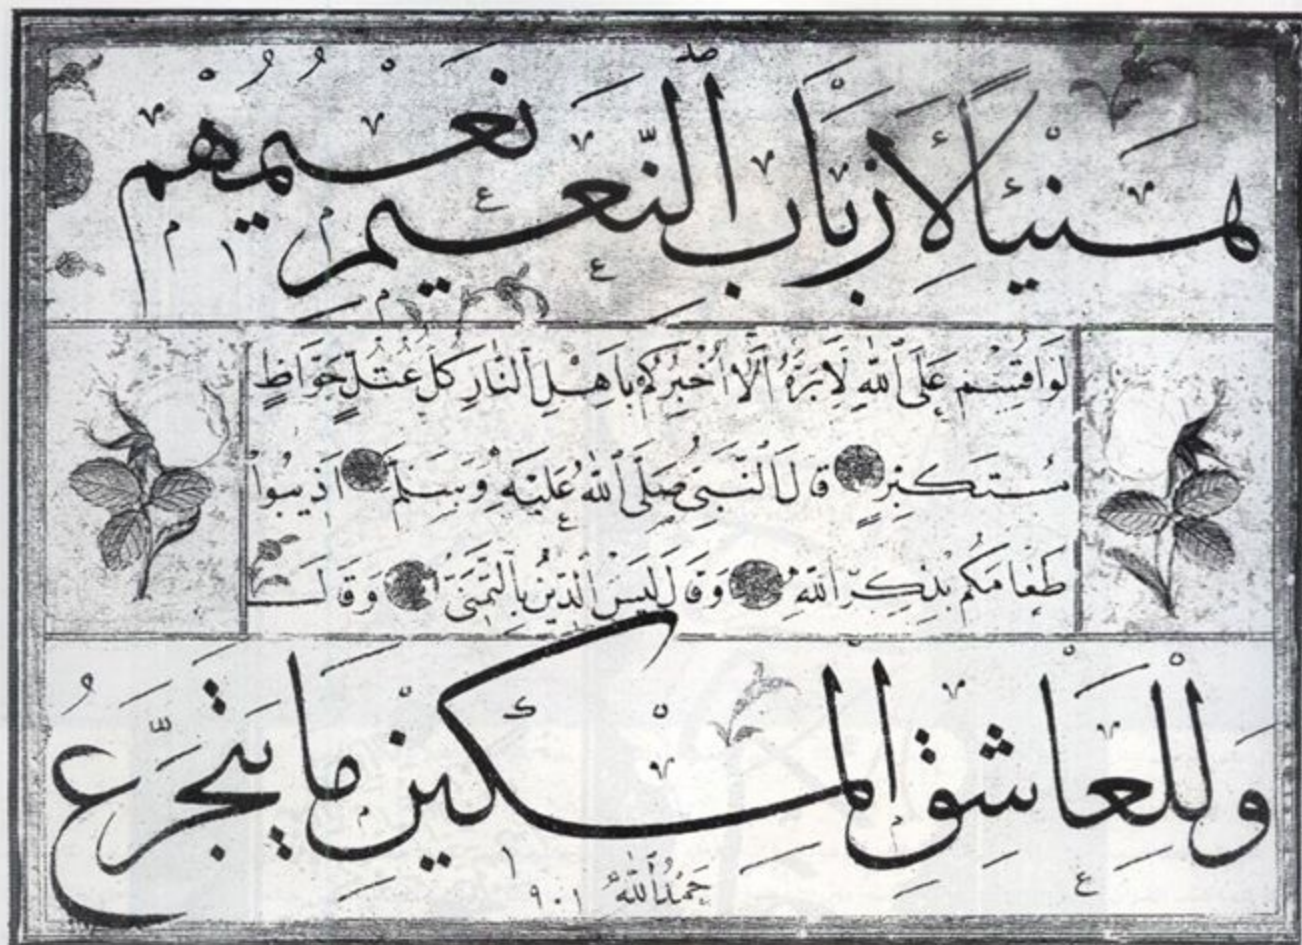 هَنِيئًا لِأَرْبَابِ النَّعِيمِ نَعِيمُهُمْ
لَوْ اَقْسَمَ عَلَى اللّٰهِ لَاَبَرَّهُ اَلَا اُخْبِرُكُمْ بِاَهْلِ النَّارِ كُلُّ عُتُلٍّ جَوَّاظٍ
مُسْتَكْبِرٍ قَالَ النَّبِيُّ صَلَّى اللّٰهُ عَلَيْهِ وَسَلَّمَ اَذِيبُوا
طَعَامَكُمْ بِذِكْرِ اللّٰهِ وَقَالَ لَيْسَ الدِّينُ بِالتَّمَنِّي وَقَالَ
وَلِلْعَاشِقِ الْمِسْكِينِ مَا يَتَجَرَّعُ
حَمْدُ اللّٰه
٩٠١